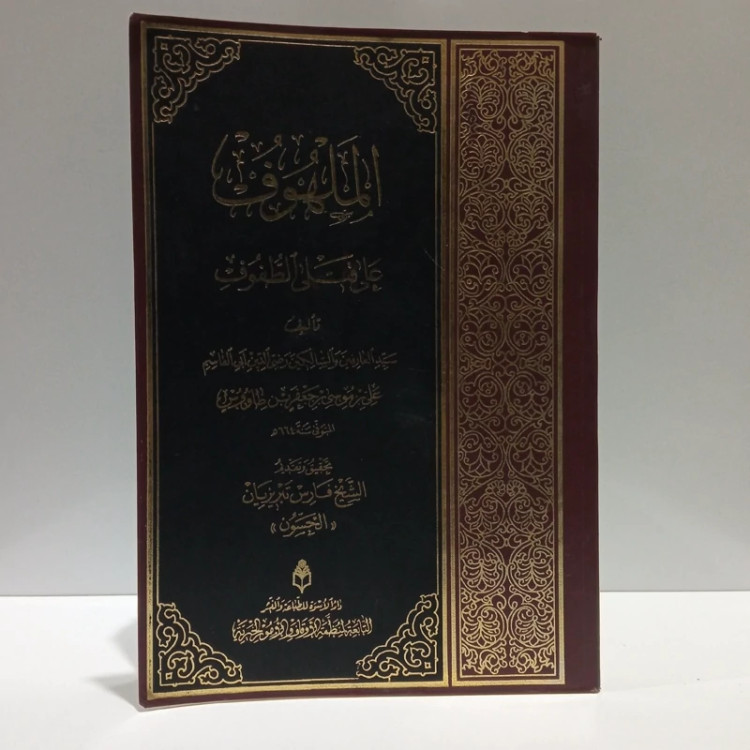 المَلهُوفُ
عَلى قَتلَى الطُّفُوفِ
تأليف
سيّد العارفين والسالكين رضي الدين أبي القاسم
علي بن موسى بن جعفر بن طاووس
المتوفى سنة ٦٦٤ هـ
تحقيق وتقديم
الشيخ فارس تبريزيان
«الحسّون»
دار الأسوة للطباعة والنشر
التابعة لمنظمة الأوقاف والأمور الخيرية